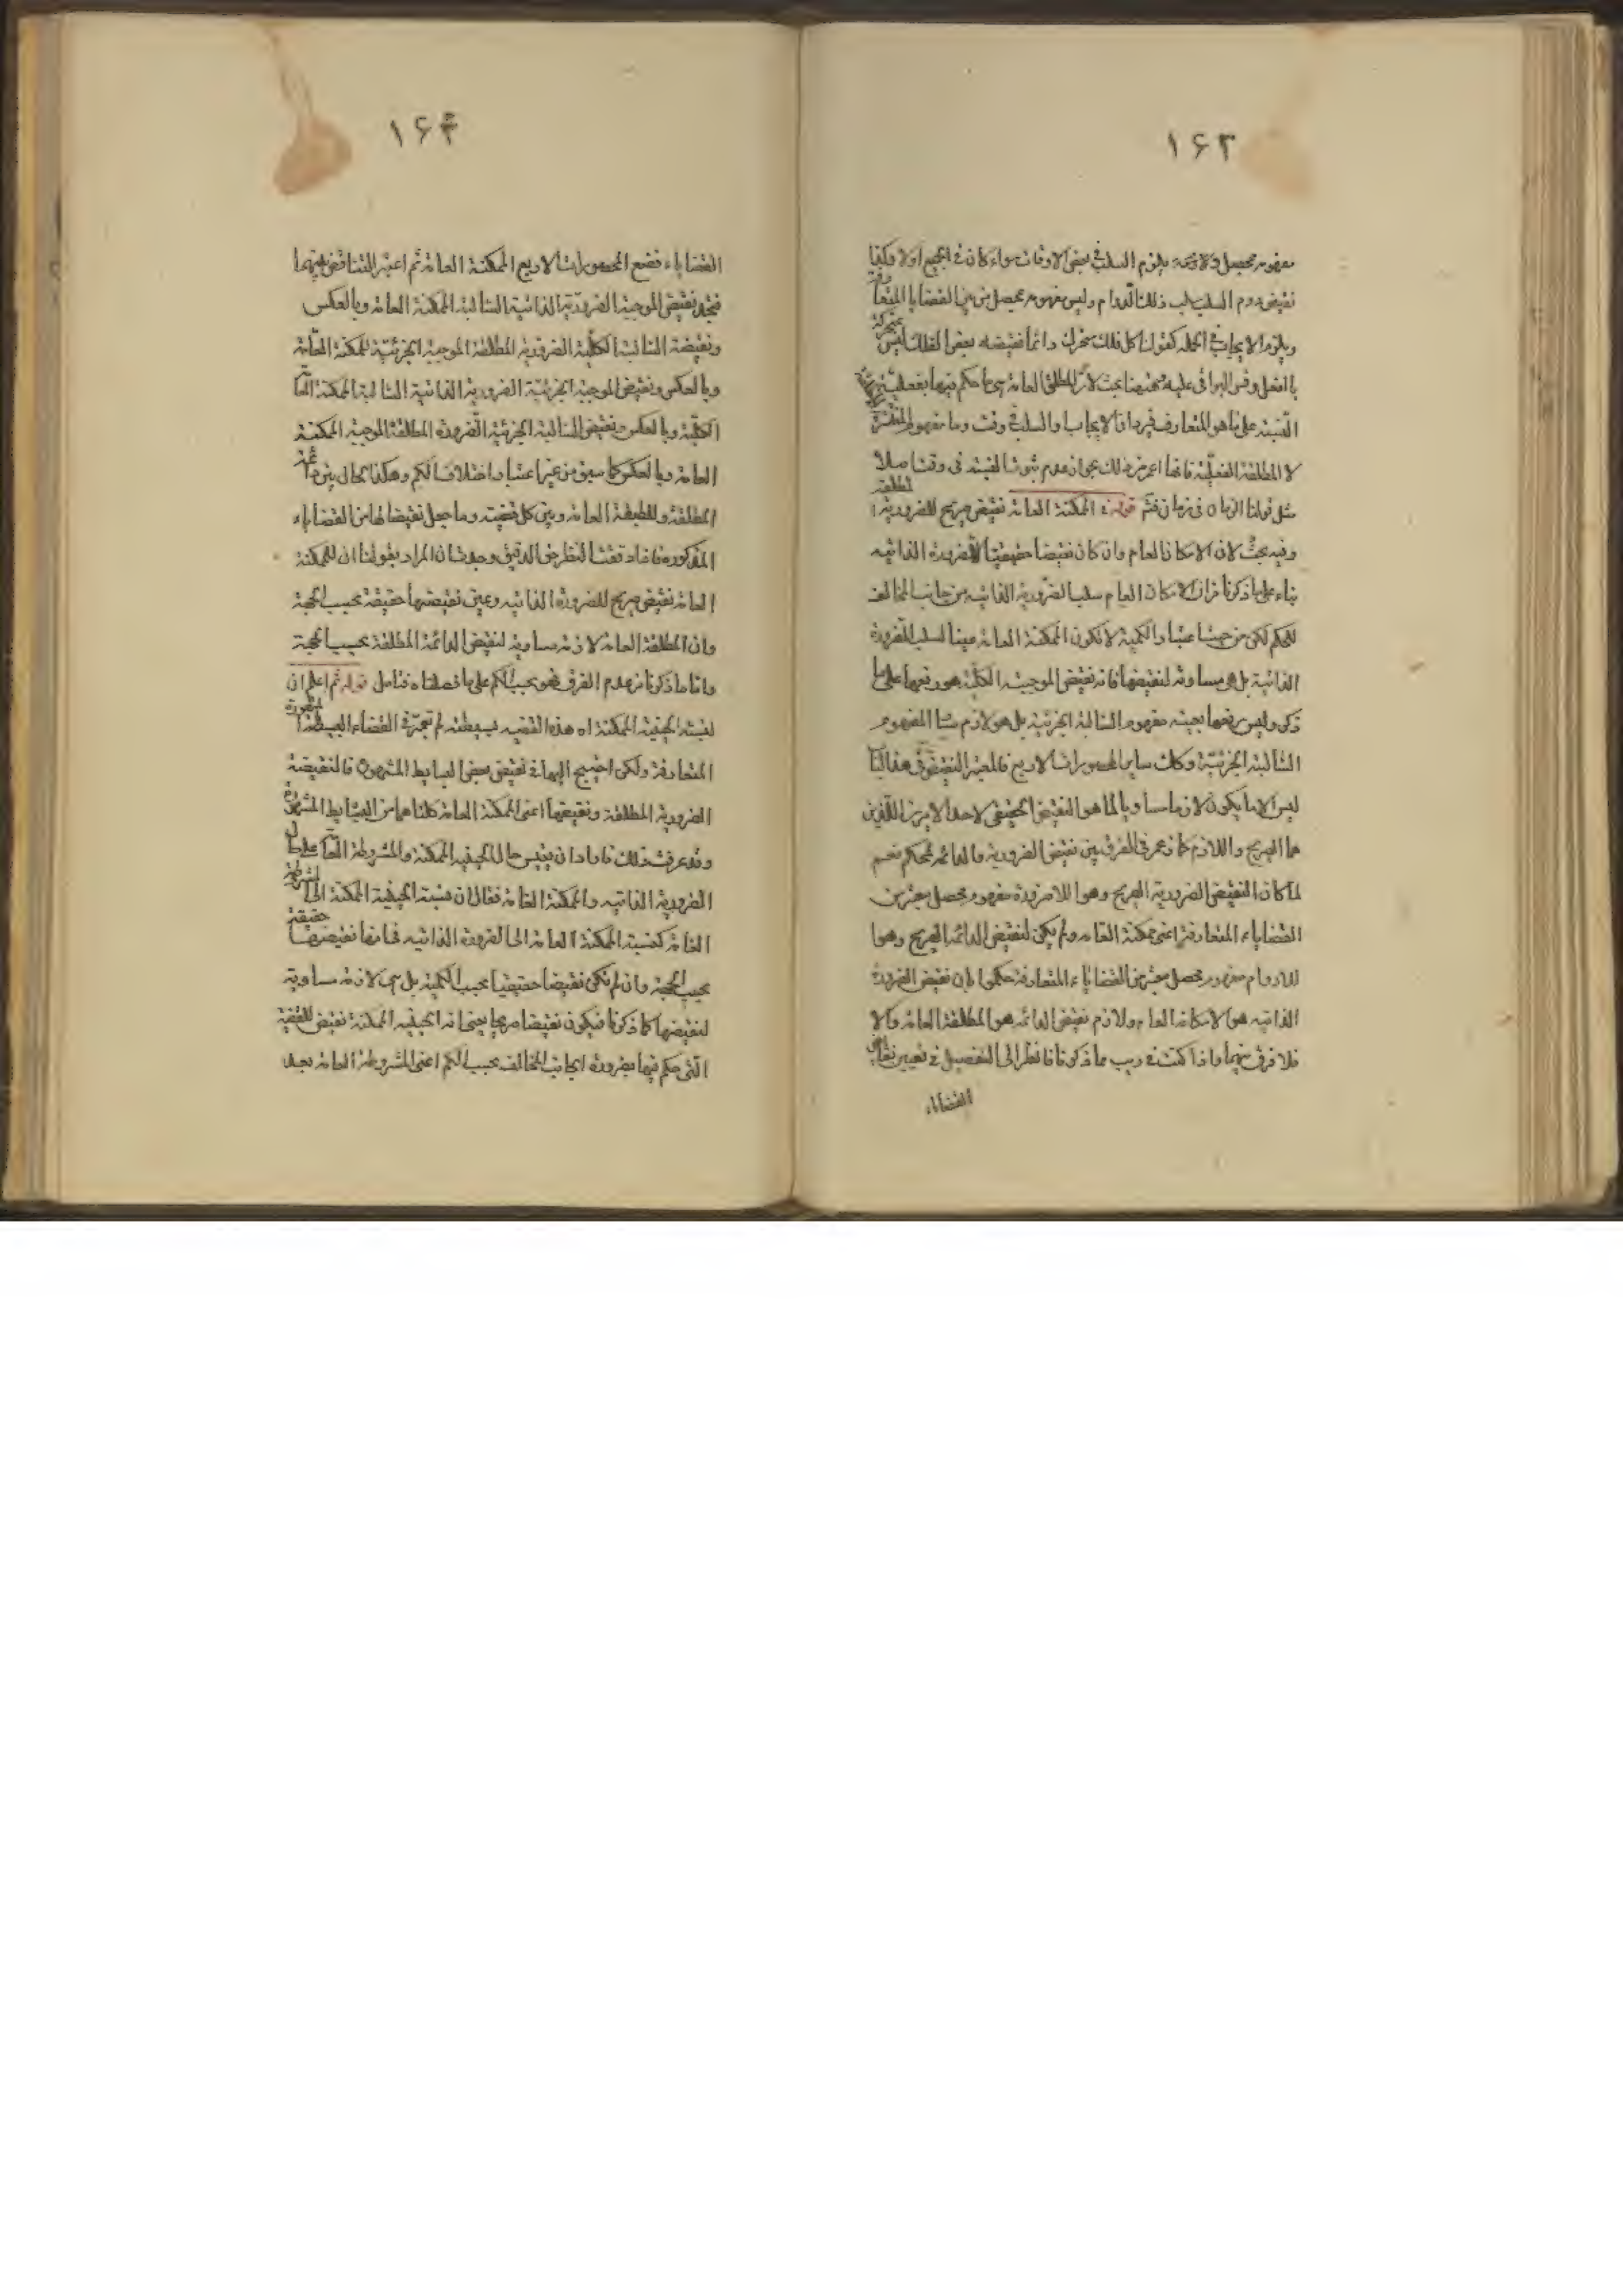 ١٦٣
مفهوم محصل ولازمه يلزم السلب فى بعض الاوقات سواء كان فى الجميع اولا وكذا
نقيض دوم السلب سلب ذلك الدوام وليس مفهوم محصل من بين القضايا المتعارفة
ويلزم الايجاب فى الجملة كقولنا كل فلك متحرك دائما نقيضه بعض الفلك ليس بمتحركة
بالفعل وقس البواقى عليه وههنا بحث لان المطلق العامة هى ما حكم فيها بفعلية
النسبة على ما هو المتعارف فيرد ان الايجاب والسلب فى وقت وما مفهوم المنتشرة
لا المطلقة الفعلية فانها اعم من ذلك بجواز عدم ثبوت النسبة فى وقت اصلا
مثل قولنا الزمان فى زمان فتم قوله الممكنة العامة نقيض صريح للضرورية المطلقة
وفيه بحث لان الامكان العام وان كان نقيضا حقيقيا للضرورة الذاتيه
بناء على ما ذكرنا من ان الامكان العام سلب الضرورة الذاتيه من جانب المخالف
للحكم لكن من حيث اعتبار الكمية لا تكون الممكنة العامة عينا لسلب الضرورة
الذاتية بل هى مساوقة لنقيضها فانه نقيض الموجبة الكلية هو رفعها على ما
ذكر وليس رفعها بعينه مفهوم السالبة الجزئية بل هو لازم مساو المفهوم
السالبة الجزئية وكذلك ساير المحصورات الاربع فالمعتبر النقيض فى هذا الباب
ليس الا ما يكون لازما مساويا لما هو النقيض الحقيقى لاحد الامرين اللذين
هما الصريح واللازم كما فى عرف الفرق بين نقيض الضرورية فالدائمه تحكم نعم
لما كان النقيض الضرورية الصريح وهوا للاضرورة مفهوم محصل معتبر من
القضاياء المتعارفة اعنى ممكنة العامه ولم يكن لنقيض الدائمه الصريح وهوا
للادوام مفهوم محصل معتبر من القضاياء المتعارفة حكموا بان نقيض الضرورة
الذاتيه هو الامكان العام ولازم نقيض الدائمه هو المطلقة العامة والا
فلا فرق بينهما واذا كنت فى ريب مما ذكرنا فانظر الى التفصيل فى تعيين نقايض
القضاياء
١٦۴
القضاياء فضع المحصورات الاربع الممكنة العامة ثم اعتبر التناقض بينهما
فتجد نقيض الموجبة الضرورية الذاتية السالبة الممكنة العامة وبالعكس
ونقيضة السالبة الكلية الضرورية المطلقة الموجبة الجزئية الممكنة العامة
وبالعكس ونقيض الموجبة الجزئية الضرورية الذاتية السالبة الممكنة العامة
الكلية وبالعكس ونقيض السالبة الجزئية الضرورة المطلقة الموجبة الممكنة
العامة وبالعكس كما سبق من غير اعتبار اختلاف الكم وهكذا الحال بين دائمة
المطلقة والمطلقة العامة وبين كل قضية وما جعل نقيضا لها من القضاياء
المذكورة فاذا دققت النظر حق الدقيق وجدت ان المراد بقولنا ان للممكنة
العامة نقيض صريح للضرورة الذاتيه وعين نقيضها حقيقة بحسب الجهة
وان المطلقة العامة لازمة مساوية لنقيض الدائمة المطلقة بحسب الجهة
واما ما ذكرنا من عدم الفرق فهو بحسب الكم على ما فصلناه فتامل قوله ثم اعلم ان
نسبة الحينية الممكنة اه هذه القضيه بسيطة لم تعتبر فى القضاء البسيطة المشهورة
المتعارفة ولكن احتيج اليها فى نقيض بعض البسايط المشهورة فالنقيضة
الضرورية المطلقة ونقيضها اعنى الممكنة العامة كلتاهما من البسايط المشهورة
وقد عرفت ذلك فاراد ان يقيس حال الحينيه الممكنة والمشروطة العامة على حال
الضرورية الذاتيه والممكنة العامة فقال ان نسبة الحينية الممكنة الى المشروطة
العامة كنسبة الممكنة العامة الى الضرورة الذاتيه فى انها نقيضها حقيقة
بحسب الجهة وان لم تكن نقيضا حقيقيا بحسب الكمية بل هى لازمة مساوية
لنقيضها كما ذكرنا فيكون نقيضا صريحا يعنى انه الحينيه الممكنة نقيض للقضية
التى حكم فيها بضرورة الجانب المخالف بحسب الكم اعنى المشروطة العامة بعد